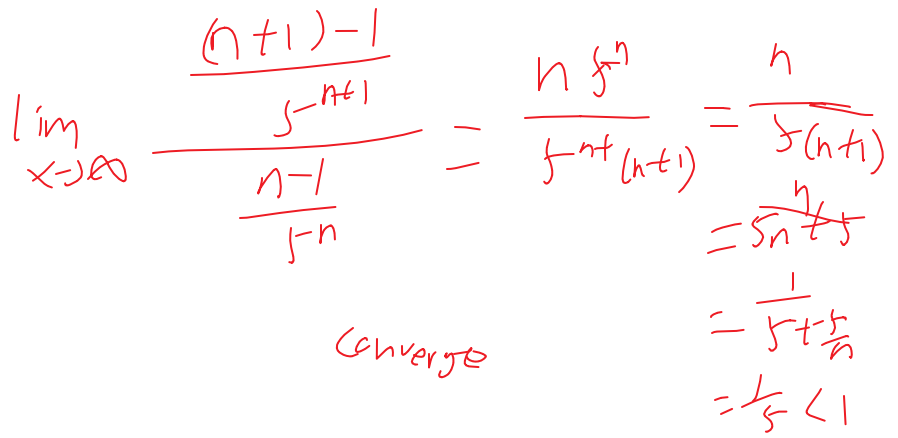 lim x→∞ ((n+1)-1)/(5^(n+1)) / ((n-1)/(5^n)) = (n 5^n)/(5^(n+1) (n+1)) = n/(5(n+1))
= n/(5n+5)
= 1/(5+5/n)
= 1/5 < 1
converge